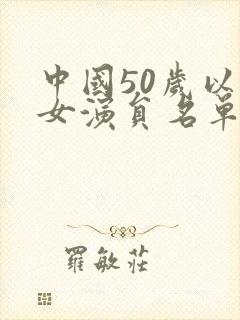 中國50歲以
女演員名單
羅敏莊